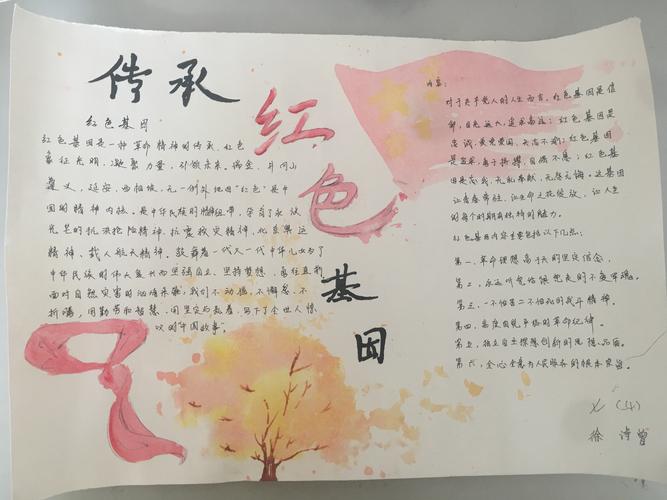 传承
红色
基因
红色基因
红色基因是一种革命精神的传承，红色
象征光明，凝聚力量，引领未来。瑞金，井冈山
遵义，延安，西柏坡，无一例外地因"红色"是中
国的精神内核。是中华民族的精神纽带，孕育了永
光是的抗洪抢险精神，抗震救灾精神，北京奥运
精神、载人航天精神。鼓舞着一代又一代中华儿女为了
中华民族的伟大复兴而坚强自立、坚持梦想，勇往直前
面对自然灾害的凶猛来袭，我们不动摇，不懈怠，不
折腾，用勤劳和智慧、用坚实与执着，写下了全世人惊
叹的中国故事。
内容：
对于共产党人的人生而言，红色基因是信
仰，目色远大，追求高远；红色基因是
忠诚，是党爱国，矢志不渝；红色基因
是坚牢，勇于拼搏，自强不息；红色基
因是忘我，无私奉献，无怨无悔。这基因
让青春常驻，让生命之花绽放，让人生
的每个时期有独特的魅力。
红色基因内容主要包括以下几点：
第一，革命理想高于天的坚定信念，
第二，永远听党话跟党走的不变军魂。
第三，一不怕苦二不怕死的战斗精神。
第四，高度自觉严格的革命纪律。
第五，独立自主探想创新的思想品质。
第六，全心全意为人民服务的根本宗旨。
七（4）
徐诗曾